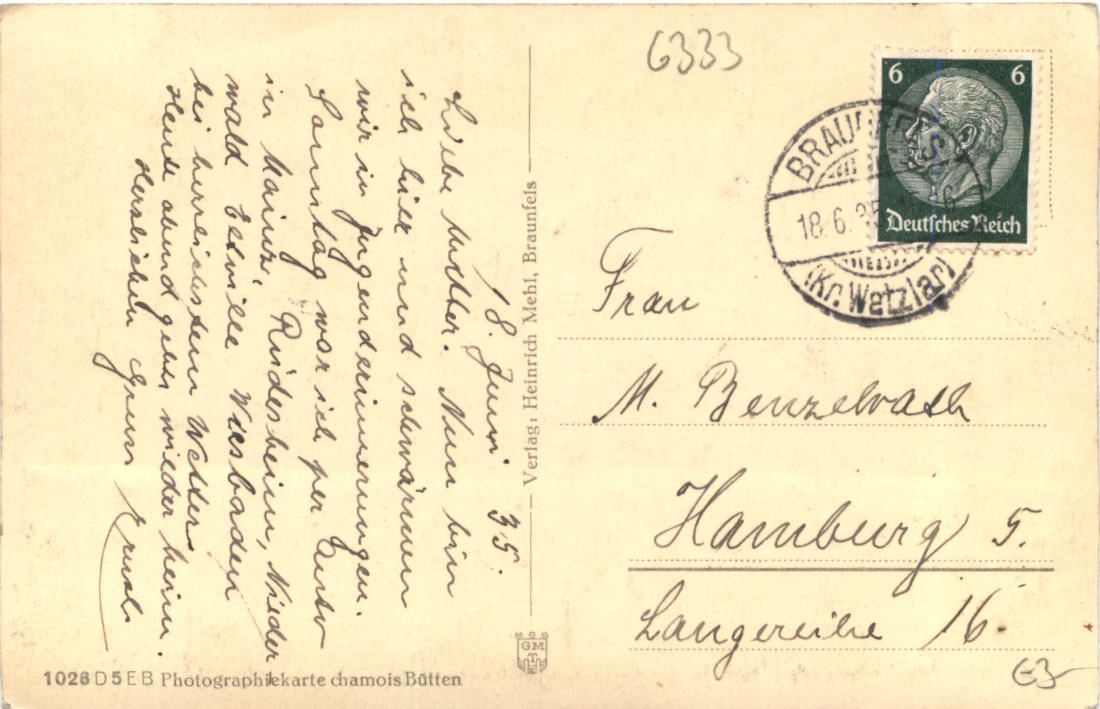 18. Juni 35.
Liebe Mutter. Nun bin
ich hier und schwärme
wir in Jugenderinnerungen.
Samstag war ich per Auto
in Mainz, Rüdesheim, Nieder
wald Eltville Wiesbaden
bei herrlichstem Wetter
Heute abend gehts wieder heim.
Herzlichen Gruss
6333
6 6
Deutsches Reich
BRAUNFELS
18.6.35
(Kr. Wetzlar)
Frau
M. Benzelrath
Hamburg 5.
Langereihe 16.
Verlag: Heinrich Mehl, Braunfels
GM
1026 D 5 E B Photographiekarte chamois Bütten